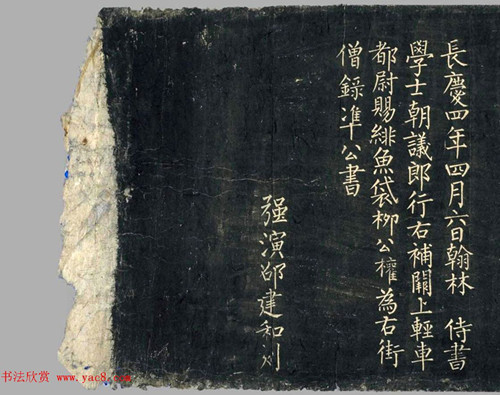 長慶四年四月六日翰林　侍書
學士朝議郎行右補闕上輕車
都尉賜緋魚袋柳公權為右街
僧錄準公書
强演邵建和刻
书法欣赏 www.yac8.com